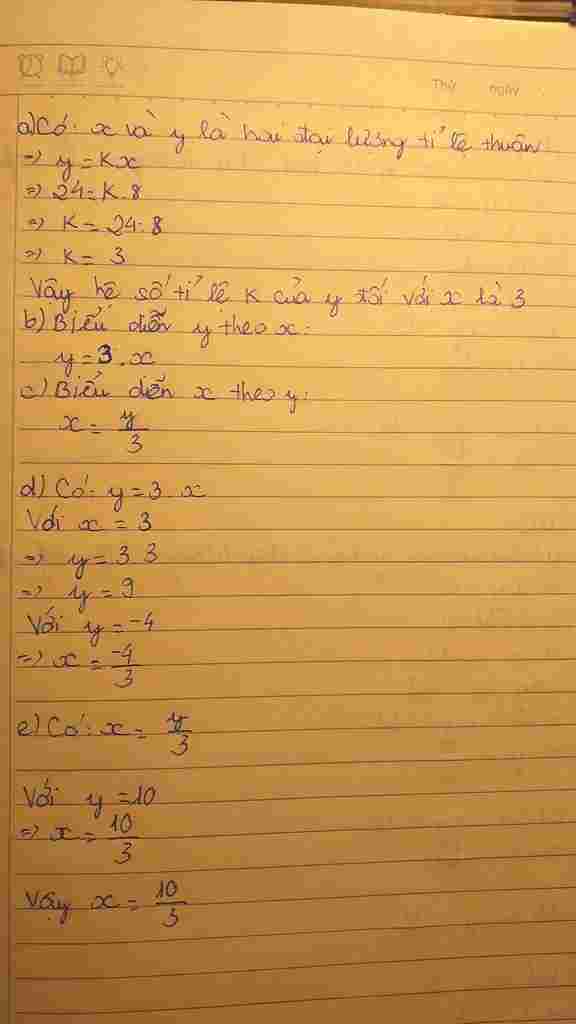 Thứ ngày
a) Có: x và y là hai đại lượng tỉ lệ thuận
=> y = Kx
=> 24 = K.8
=> K = 24:8
=> K = 3
Vậy hệ số tỉ lệ K của y đối với x là 3
b) Biểu diễn y theo x:
y = 3.x
c) Biểu diễn x theo y:
x = y/3
d) Có: y = 3.x
Với x = 3
=> y = 3.3
=> y = 9
Với y = -4
=> x = -4/3
e) Có: x = y/3
Với y = 10
=> x = 10/3
Vậy x = 10/3